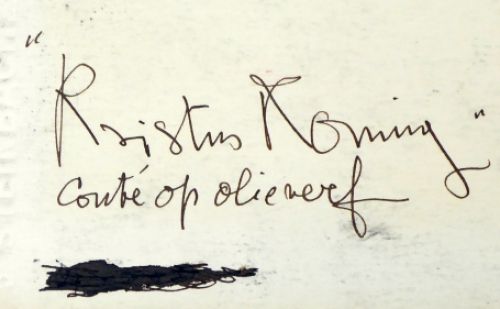 "Kristus Koning"
conté op olieverf